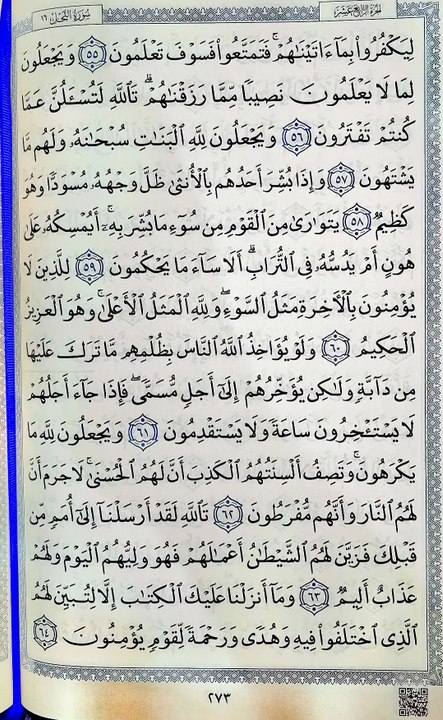 الجزء الرابع عشر
سورة النحل ١٦
لِيَكْفُرُوا۟ بِمَآ ءَاتَيْنَٰهُمْ ۚ فَتَمَتَّعُوا۟ فَسَوْفَ تَعْلَمُونَ ٥٥ وَيَجْعَلُونَ
لِمَا لَا يَعْلَمُونَ نَصِيبًا مِّمَّا رَزَقْنَٰهُمْ ۗ تَٱللَّهِ لَتُسْـَٔلُنَّ عَمَّا
كُنتُمْ تَفْتَرُونَ ٥٦ وَيَجْعَلُونَ لِلَّهِ ٱلْبَنَٰتِ سُبْحَٰنَهُۥ وَلَهُم مَّا
يَشْتَهُونَ ٥٧ وَإِذَا بُشِّرَ أَحَدُهُم بِٱلْأُنثَىٰ ظَلَّ وَجْهُهُۥ مُسْوَدًّا وَهُوَ
كَظِيمٌ ٥٨ يَتَوَٰرَىٰ مِنَ ٱلْقَوْمِ مِن سُوٓءِ مَا بُشِّرَ بِهِۦٓ ۚ أَيُمْسِكُهُۥ عَلَىٰ
هُونٍ أَمْ يَدُسُّهُۥ فِى ٱلتُّرَابِ ۗ أَلَا سَآءَ مَا يَحْكُمُونَ ٥٩ لِلَّذِينَ لَا
يُؤْمِنُونَ بِٱلْءَاخِرَةِ مَثَلُ ٱلسَّوْءِ ۖ وَلِلَّهِ ٱلْمَثَلُ ٱلْأَعْلَىٰ ۚ وَهُوَ ٱلْعَزِيزُ
ٱلْحَكِيمُ ٦٠ وَلَوْ يُؤَاخِذُ ٱللَّهُ ٱلنَّاسَ بِظُلْمِهِم مَّا تَرَكَ عَلَيْهَا
مِن دَآبَّةٍ وَلَٰكِن يُؤَخِّرُهُمْ إِلَىٰٓ أَجَلٍ مُّسَمًّى ۖ فَإِذَا جَآءَ أَجَلُهُمْ
لَا يَسْتَـْٔخِرُونَ سَاعَةً وَلَا يَسْتَقْدِمُونَ ٦١ وَيَجْعَلُونَ لِلَّهِ مَا
يَكْرَهُونَ ۚ وَتَصِفُ أَلْسِنَتُهُمُ ٱلْكَذِبَ أَنَّ لَهُمُ ٱلْحُسْنَىٰ ۖ لَا جَرَمَ أَنَّ
لَهُمُ ٱلنَّارَ وَأَنَّهُم مُّفْرَطُونَ ٦٢ تَٱللَّهِ لَقَدْ أَرْسَلْنَآ إِلَىٰٓ أُمَمٍ مِّن
قَبْلِكَ فَزَيَّنَ لَهُمُ ٱلشَّيْطَٰنُ أَعْمَٰلَهُمْ فَهُوَ وَلِيُّهُمُ ٱلْيَوْمَ وَلَهُمْ
عَذَابٌ أَلِيمٌ ٦٣ وَمَآ أَنزَلْنَا عَلَيْكَ ٱلْكِتَٰبَ إِلَّا لِتُبَيِّنَ لَهُمُ
ٱلَّذِى ٱخْتَلَفُوا۟ فِيهِ ۙ وَهُدًى وَرَحْمَةً لِّقَوْمٍ يُؤْمِنُونَ ٦٤
٢٧٣